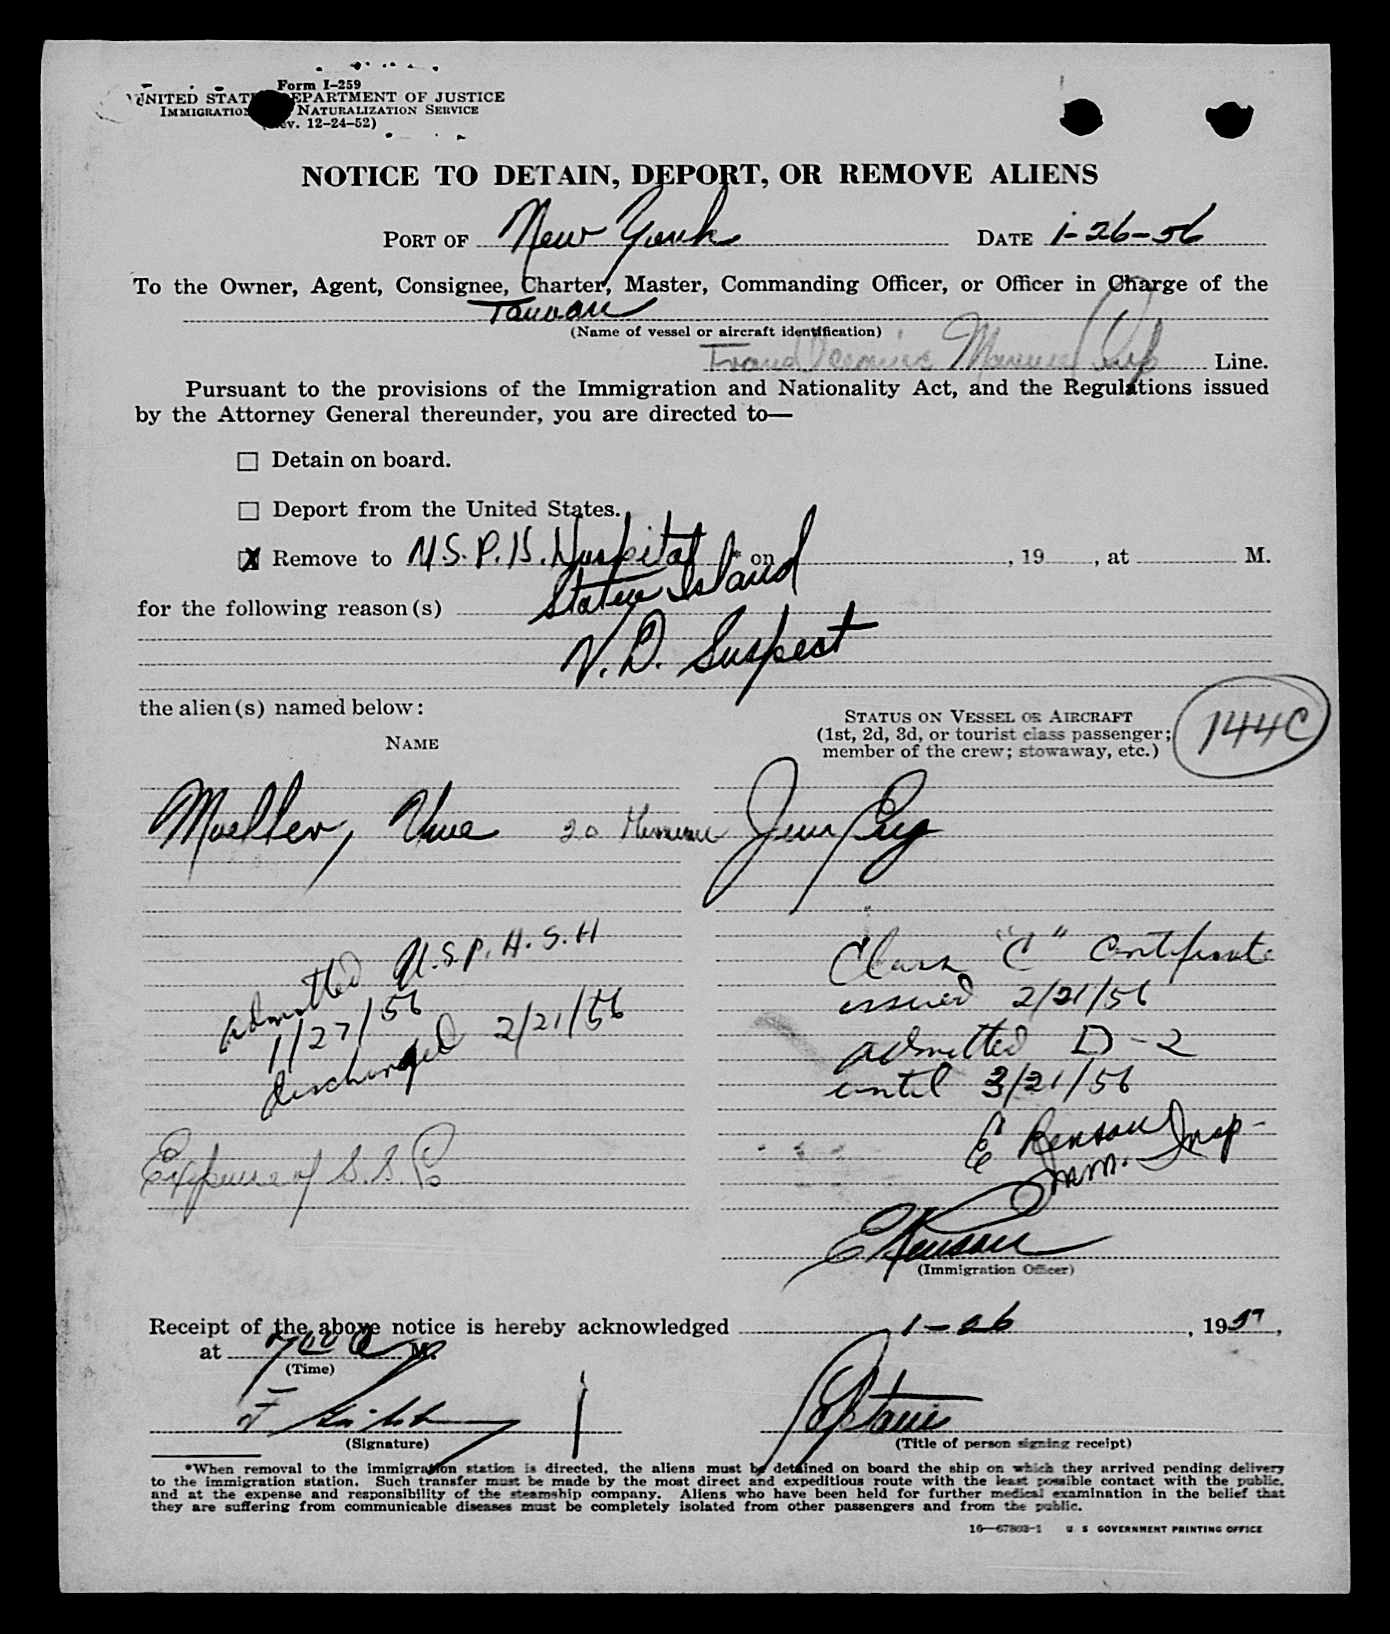 Form I-259
UNITED STATES DEPARTMENT OF JUSTICE
IMMIGRATION NATURALIZATION SERVICE
(Rev. 12-24-52)
NOTICE TO DETAIN, DEPORT, OR REMOVE ALIENS
PORT OF New York DATE 1-26-56
To the Owner, Agent, Consignee, Charter, Master, Commanding Officer, or Officer in Charge of the
(Name of vessel or aircraft identification)
Line.
Pursuant to the provisions of the Immigration and Nationality Act, and the Regulations issued
by the Attorney General thereunder, you are directed to—
Detain on board.
Deport from the United States.
X Remove to U.S.P.H. Hospital * on , 19 , at M.
Staten Island
for the following reason(s)
V.D. Suspect
the alien(s) named below:
STATUS ON VESSEL OR AIRCRAFT
(1st, 2d, 3d, or tourist class passenger;
member of the crew; stowaway, etc.)
144C
NAME
Moeller, Uwe 20
admitted U.S.P.H.S.H
1/27/56
discharged 2/21/56
Expense of S.S. Co
Class "C" Certificate
issued 2/21/56
admitted D-2
until 3/21/56
E Kenson
Imm. Insp.
E Kenson
(Immigration Officer)
Receipt of the above notice is hereby acknowledged 1-26, 19
at M.
(Time)
(Signature)
Captain
(Title of person signing receipt)
*When removal to the immigration station is directed, the aliens must be detained on board the ship on which they arrived pending delivery
to the immigration station. Such transfer must be made by the most direct and expeditious route with the least possible contact with the public,
and at the expense and responsibility of the steamship company. Aliens who have been held for further medical examination in the belief that
they are suffering from communicable diseases must be completely isolated from other passengers and from the public.
16—67803-1 U S GOVERNMENT PRINTING OFFICE